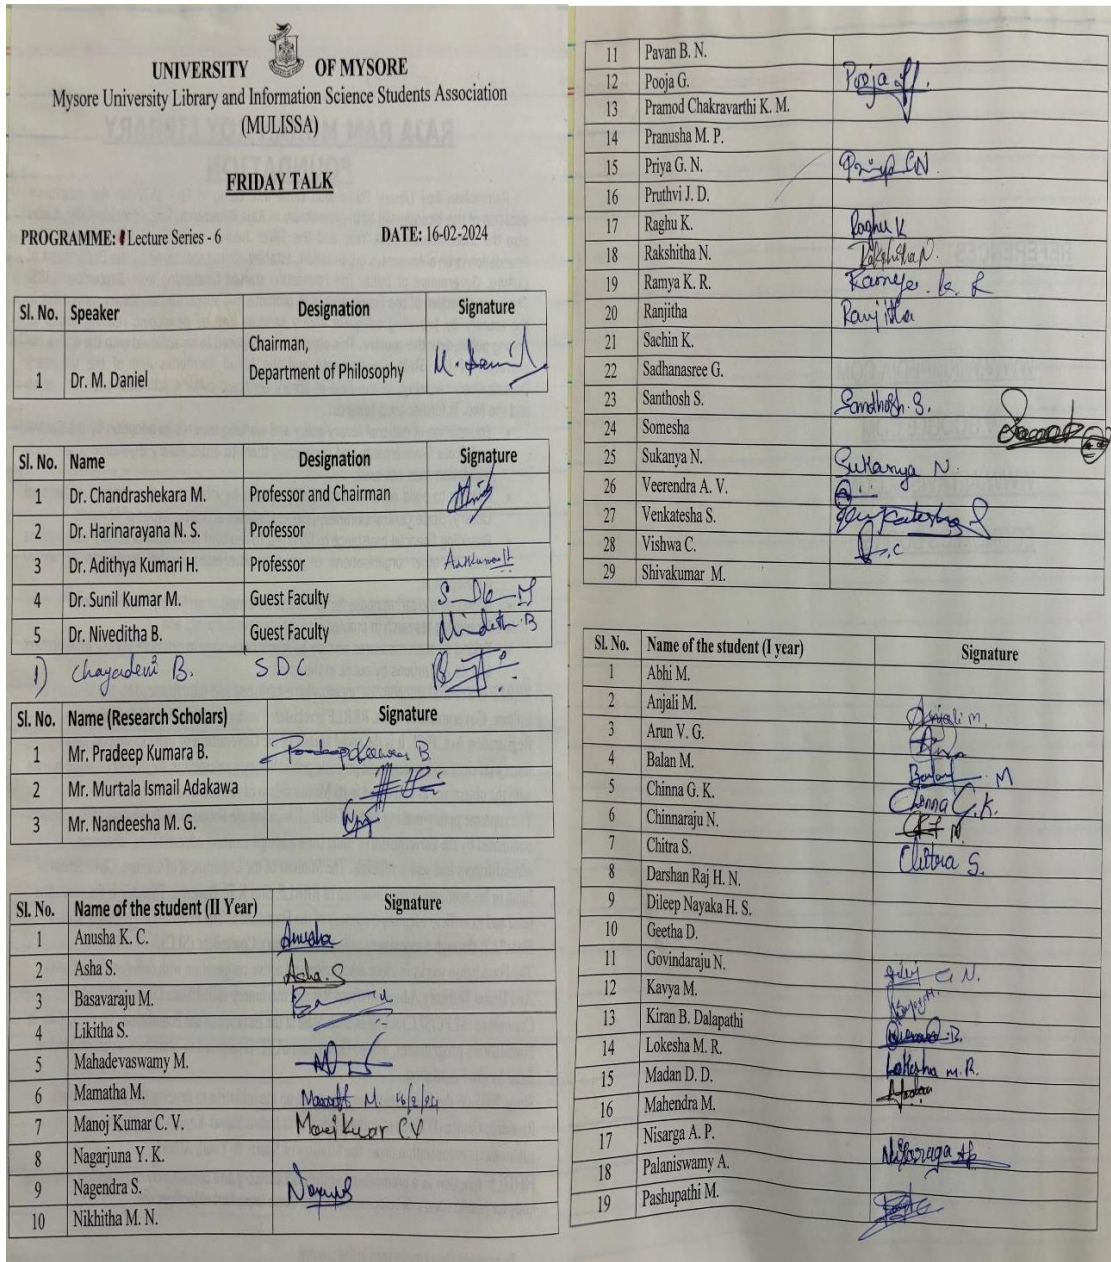 UNIVERSITY OF MYSORE
Mysore University Library and Information Science Students Association
(MULISSA)
FRIDAY TALK
PROGRAMME: Lecture Series - 6 DATE: 16-02-2024
Sl. No. Speaker Designation Signature
1 Dr. M. Daniel Chairman, Department of Philosophy
Sl. No. Name Designation Signature
1 Dr. Chandrashekara M. Professor and Chairman
2 Dr. Harinarayana N. S. Professor
3 Dr. Adithya Kumari H. Professor
4 Dr. Sunil Kumar M. Guest Faculty
5 Dr. Niveditha B. Guest Faculty
1) Chayadevi B. SDC
Sl. No. Name (Research Scholars) Signature
1 Mr. Pradeep Kumara B.
2 Mr. Murtala Ismail Adakawa
3 Mr. Nandeesha M. G.
Sl. No. Name of the student (II Year) Signature
1 Anusha K. C. Anusha
2 Asha S. Asha.S
3 Basavaraju M.
4 Likitha S.
5 Mahadevaswamy M.
6 Mamatha M. M. 16/2/24
7 Manoj Kumar C. V.
8 Nagarjuna Y. K.
9 Nagendra S.
10 Nikhitha M. N.
11 Pavan B. N.
12 Pooja G. Pooja
13 Pramod Chakravarthi K. M.
14 Pranusha M. P.
15 Priya G. N.
16 Pruthvi J. D.
17 Raghu K. Raghu K
18 Rakshitha N. Rakshitha N.
19 Ramya K. R.
20 Ranjitha Ranjitha
21 Sachin K.
22 Sadhanasree G.
23 Santhosh S. Santhosh. S.
24 Somesha
25 Sukanya N. Sukanya N.
26 Veerendra A. V.
27 Venkatesha S.
28 Vishwa C.
29 Shivakumar M.
Sl. No. Name of the student (I year) Signature
1 Abhi M.
2 Anjali M. Anjali M.
3 Arun V. G.
4 Balan M.
5 Chinna G. K. Chinna G.K.
6 Chinnaraju N.
7 Chitra S. Chitra S.
8 Darshan Raj H. N.
9 Dileep Nayaka H. S.
10 Geetha D.
11 Govindaraju N.
12 Kavya M.
13 Kiran B. Dalapathi
14 Lokesha M. R. Lokesha M.R.
15 Madan D. D.
16 Mahendra M.
17 Nisarga A. P.
18 Palaniswamy A.
19 Pashupathi M.